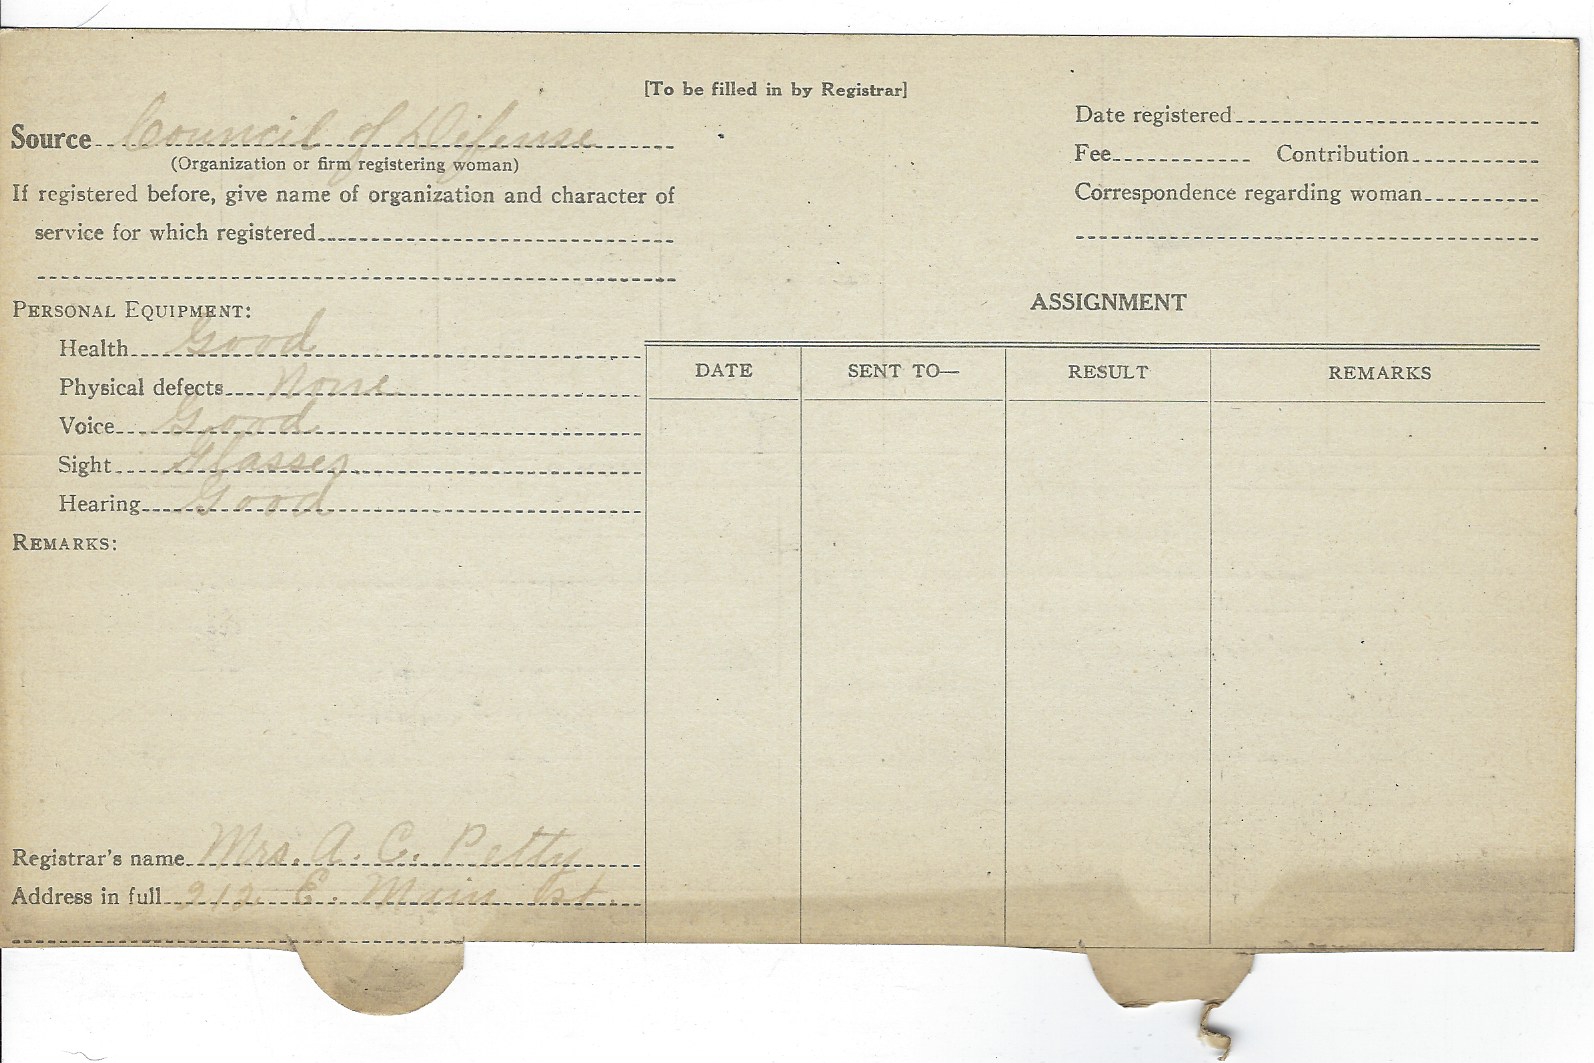 [To be filled in by Registrar]
Source Council of Defense
(Organization or firm registering woman)
If registered before, give name of organization and character of
service for which registered
Date registered
Fee Contribution
Correspondence regarding woman
PERSONAL EQUIPMENT:
Health Good
Physical defects None
Voice Good
Sight Glasses
Hearing Good
REMARKS:
ASSIGNMENT
DATE SENT TO— RESULT REMARKS
Registrar's name Mrs. A. C. Petty
Address in full 212 E. Main St.